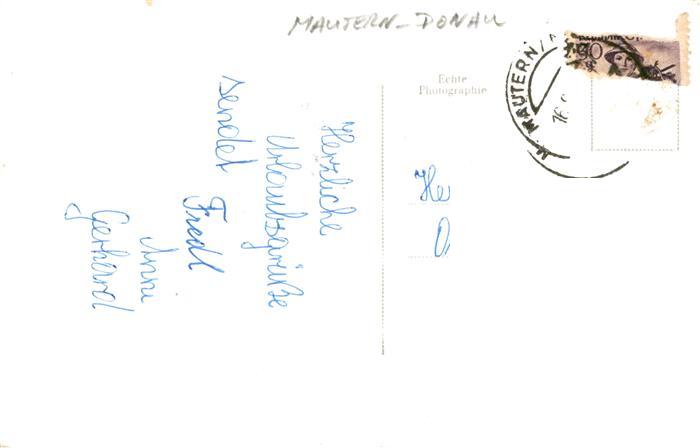 MAUTERN-DONAU
Herzliche
Urlaubsgrüße
sendet
Fredl
Anni
Gerhard
Echte
Photographie
MAUTERN
30
He